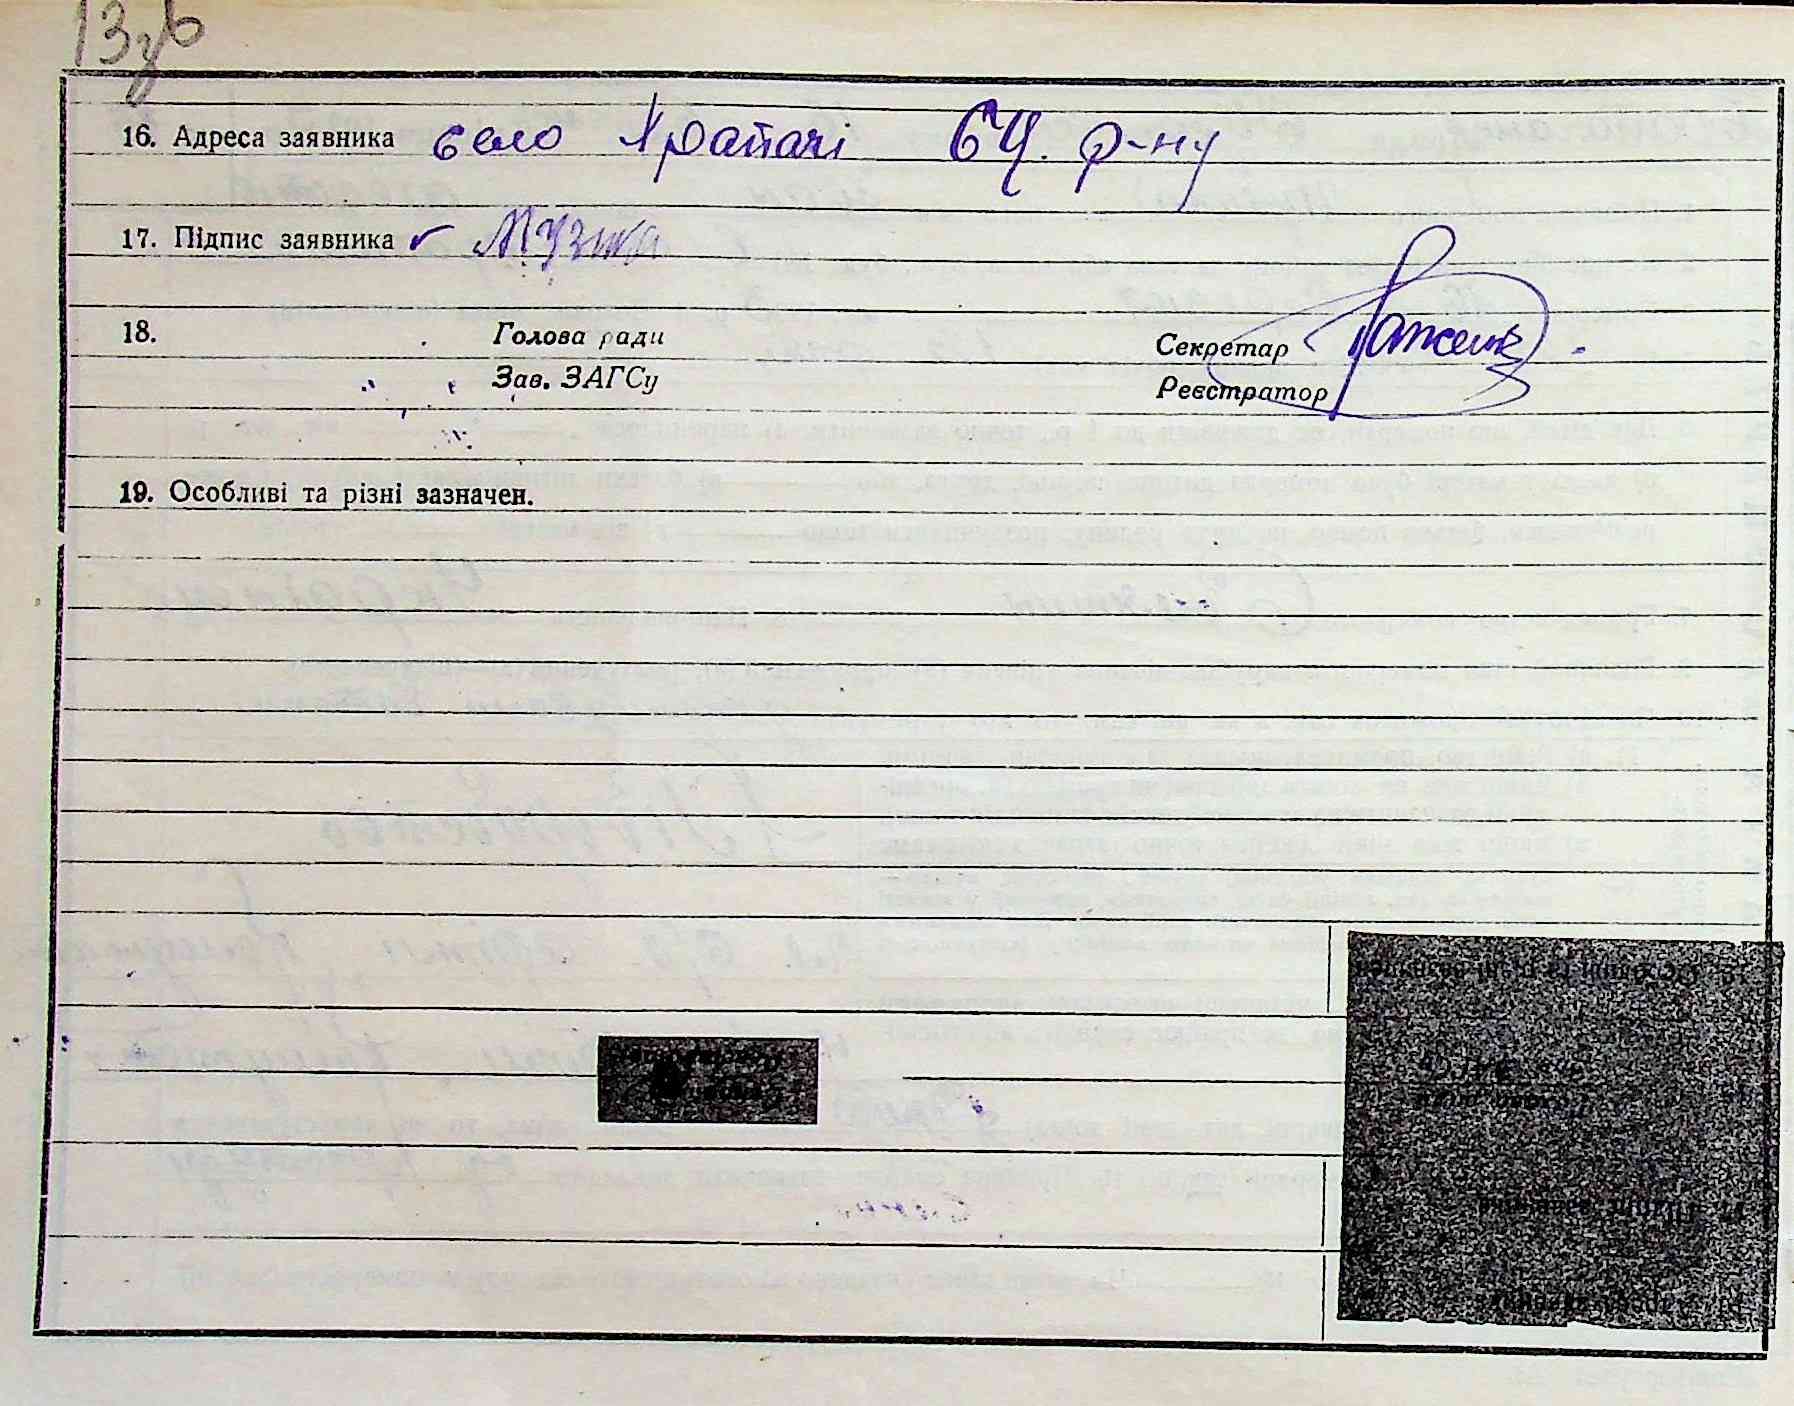 13зв
16. Адреса заявника село Храпачі БЦ. р-ну
17. Підпис заявника Музика
18. Голова ради Секретар
Зав. ЗАГСу Реєстратор
19. Особливі та різні зазначен.